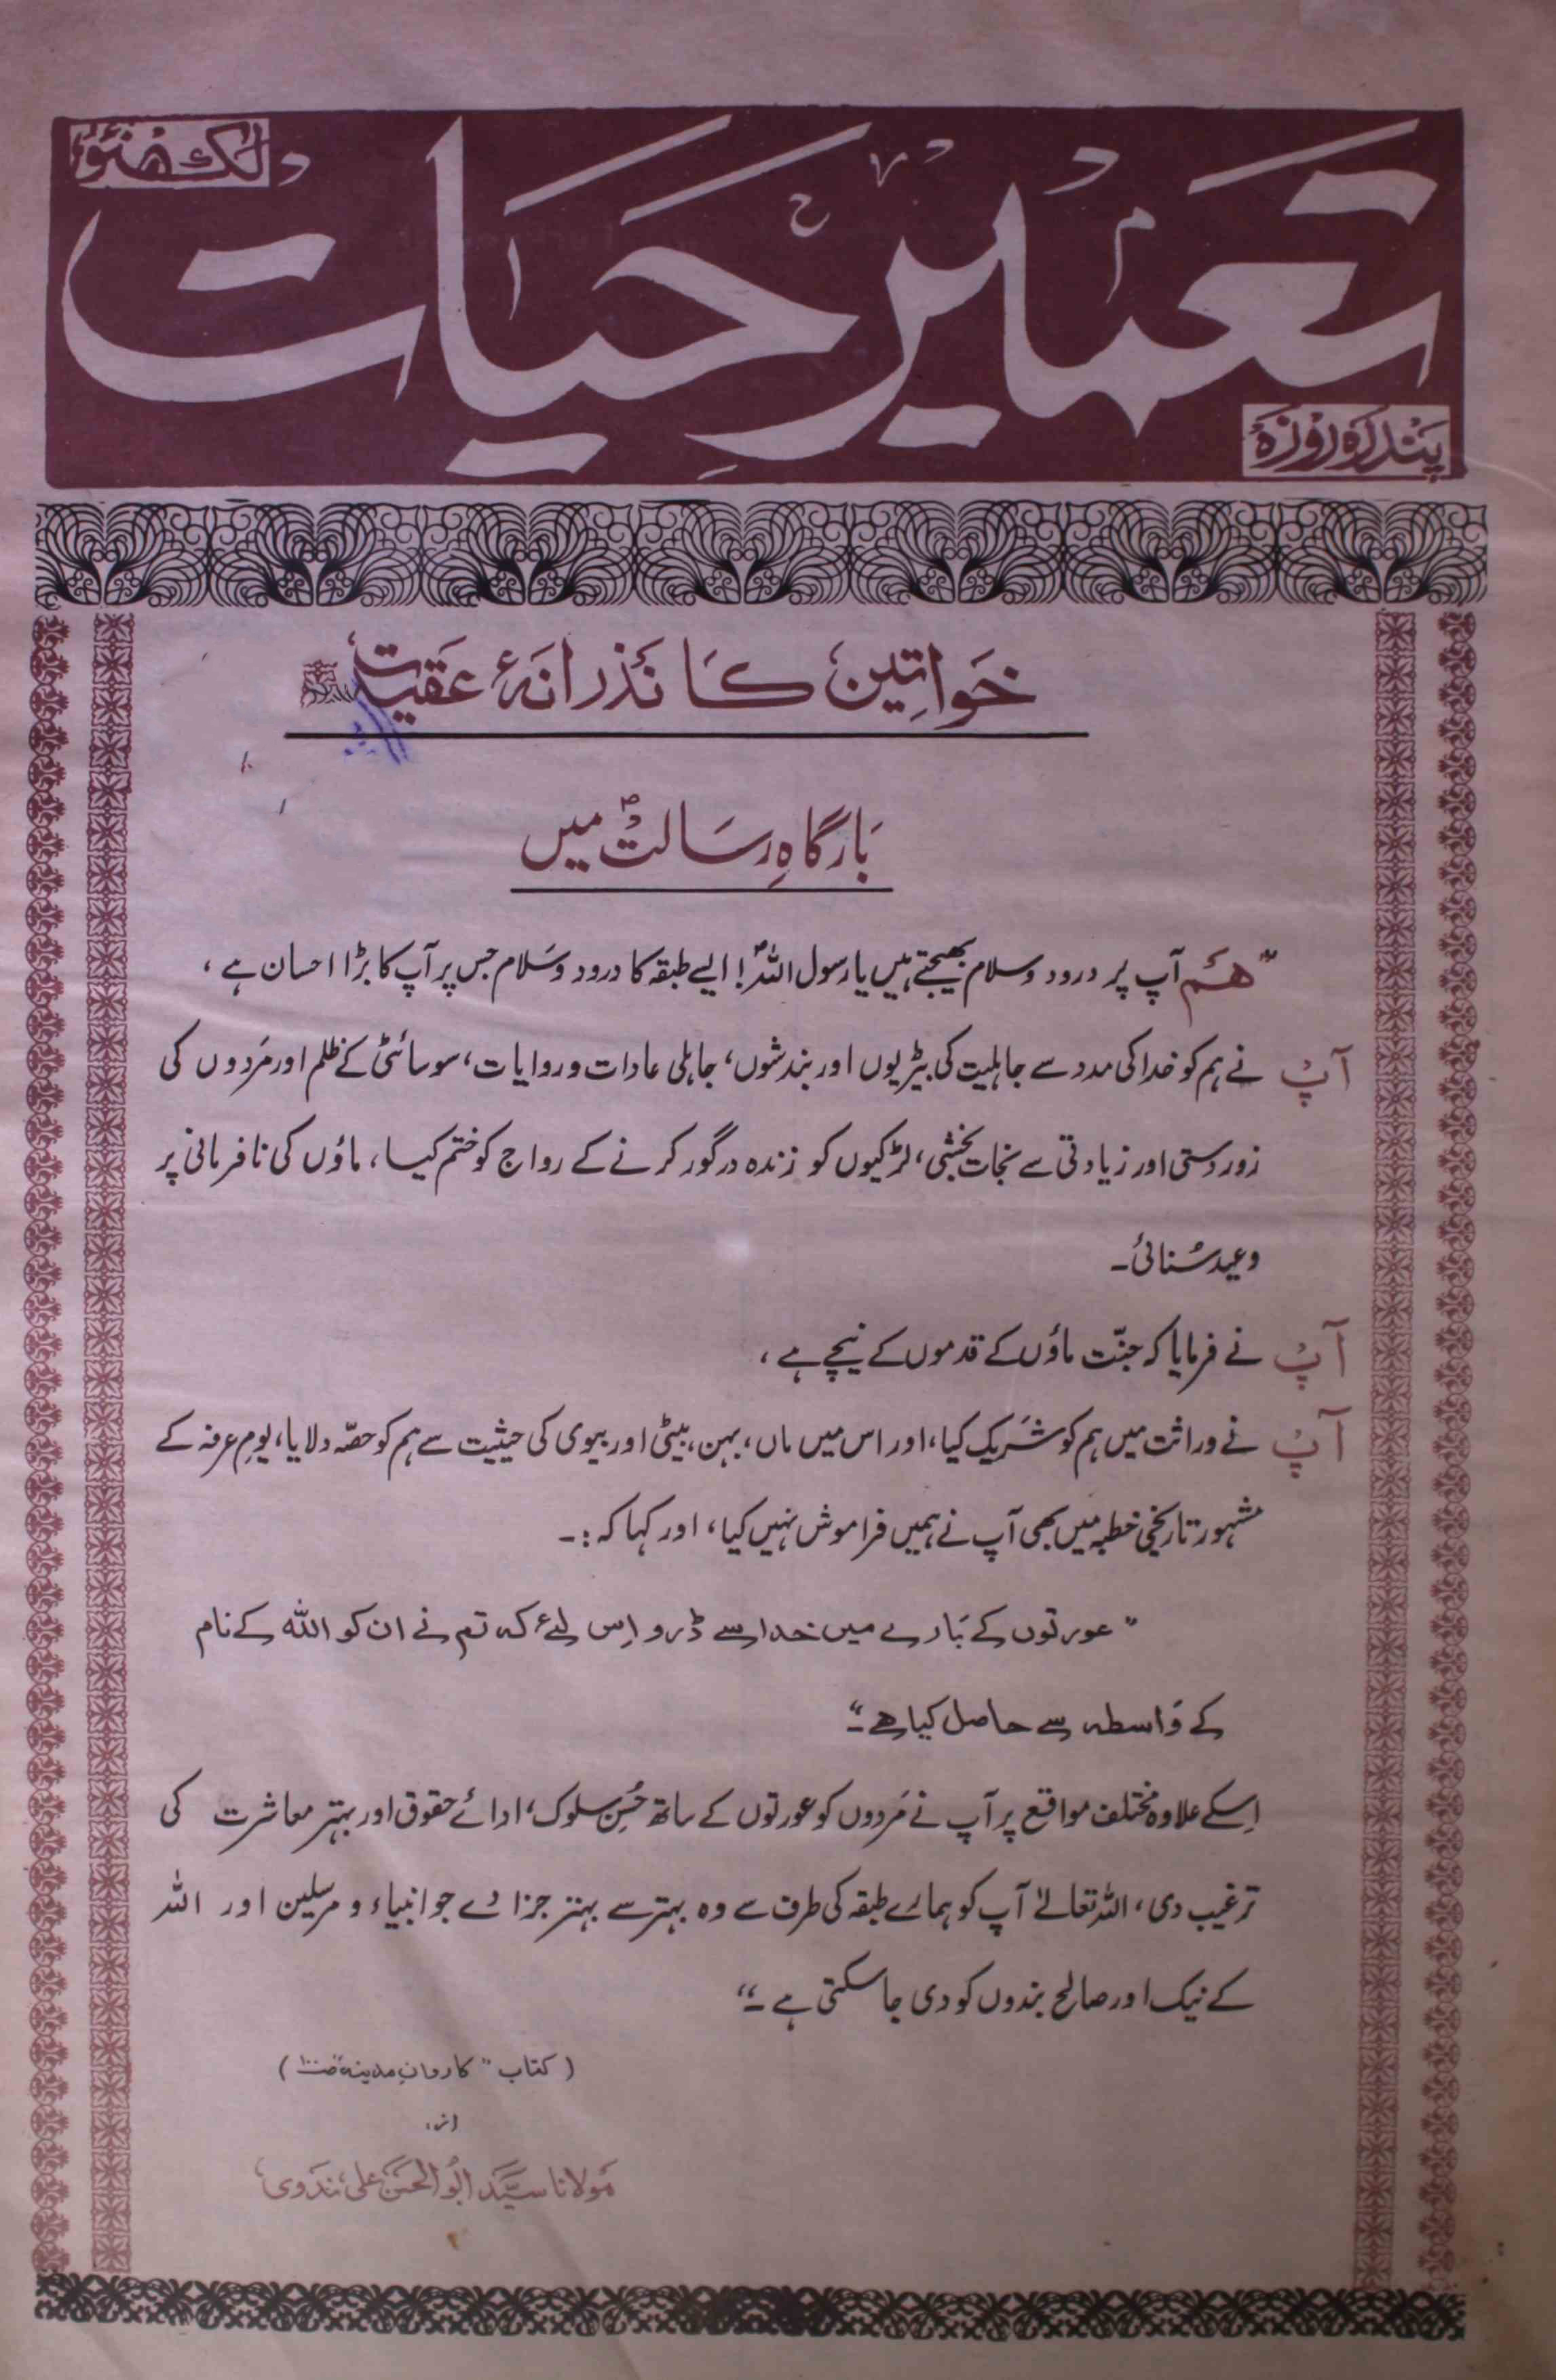 لکھنؤ
تعمیر حیات
پندرہ روزہ
خواتین کا نذرانۂ عقیدت
بارگاہِ رسالتؐ میں
"ہم آپ پر درود و سلام بھیجتے ہیں یا رسول اللہؐ! ایسے طبقہ کا درود و سَلام جس پر آپ کا بڑا احسان ہے،
آپؐ نے ہم کو خدا کی مدد سے جاہلیت کی بیڑیوں اور بندشوں، جاہلی عادات و روایات، سوسائٹی کے ظلم اور مَردوں کی
زور دستی اور زیادتی سے نجات بخشی، لڑکیوں کو زندہ درگور کرنے کے رواج کو ختم کیا، ماؤں کی نافرمانی پر
وعید سُنائی۔
آپؐ نے فرمایا کہ جنّت ماؤں کے قدموں کے نیچے ہے،
آپؐ نے وراثت میں ہم کو شَریک کیا، اور اس میں ماں، بہن، بیٹی اور بیوی کی حیثیت سے ہم کو حصّہ دلایا، یومِ عرفہ کے
مشہور تاریخی خطبہ میں بھی آپ نے ہمیں فراموش نہیں کیا، اور کہا کہ :۔
"عورتوں کے بَارے میں خدا سے ڈرو اِس لئے کہ تم نے ان کو اللہ کے نام
کے وَاسطہ سے حاصل کیا ہے۔"
اِسکے علاوہ مختلف مواقع پر آپ نے مَردوں کو عورتوں کے ساتھ حُسنِ سلوک، ادائے حقوق اور بہتر معاشرت کی
ترغیب دی، اللہ تعالےٰ آپ کو ہمارے طبقہ کی طرف سے وہ بہتر سے بہتر جزا دے جو انبیاء و مرسلین اور اللہ
کے نیک اور صالح بندوں کو دی جا سکتی ہے۔"
(کتاب "کاروانِ مدینہ" صـ۱۰۰)
از:
مَولانا سیَّد ابُو الحسَن علی ندَوی